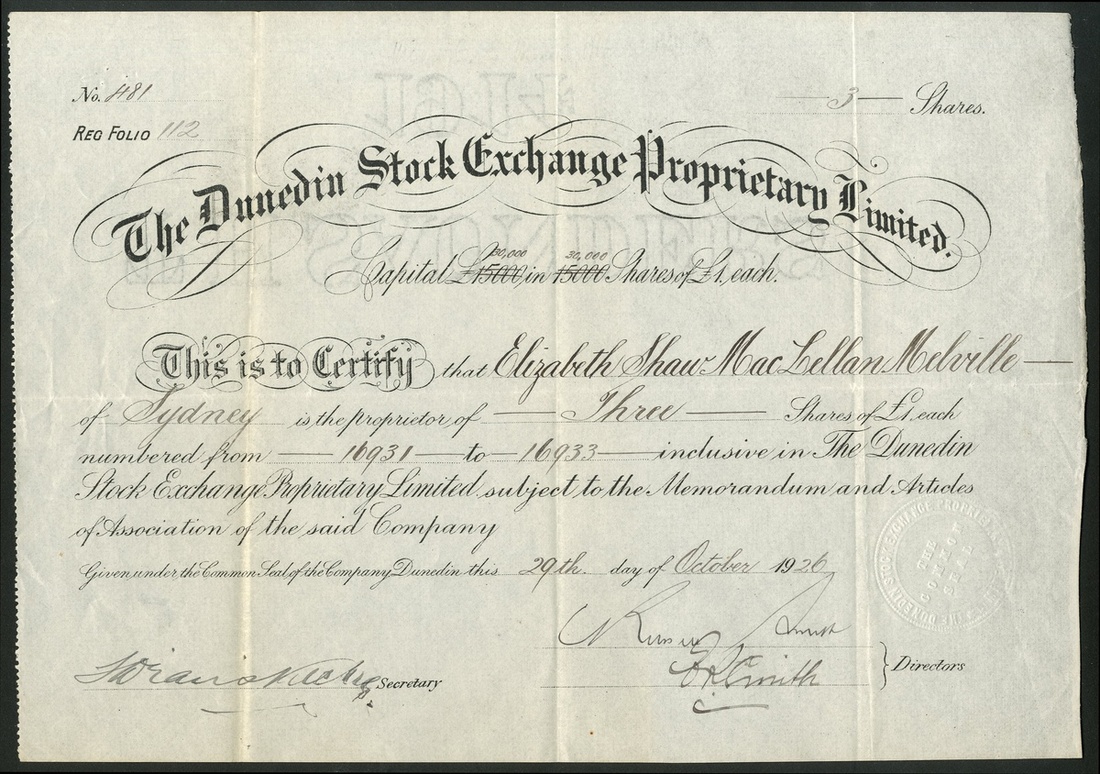 No. 481
3 Shares.
REG FOLIO 112
The Dunedin Stock Exchange Proprietary Limited.
30,000 30,000
Capital £15000 in 15000 Shares of £1, each.
This is to Certify that Elizabeth Shaw MacLellan Melville
of Sydney is the proprietor of Three Shares of £1 each
numbered from 16931 to 16933 inclusive in The Dunedin
Stock Exchange Proprietary Limited subject to the Memorandum and Articles
of Association of the said Company
Given under the Common Seal of the Company Dunedin this 29th. day of October 1926
THE COMMON SEAL
Smith
Secretary
Smith
Directors